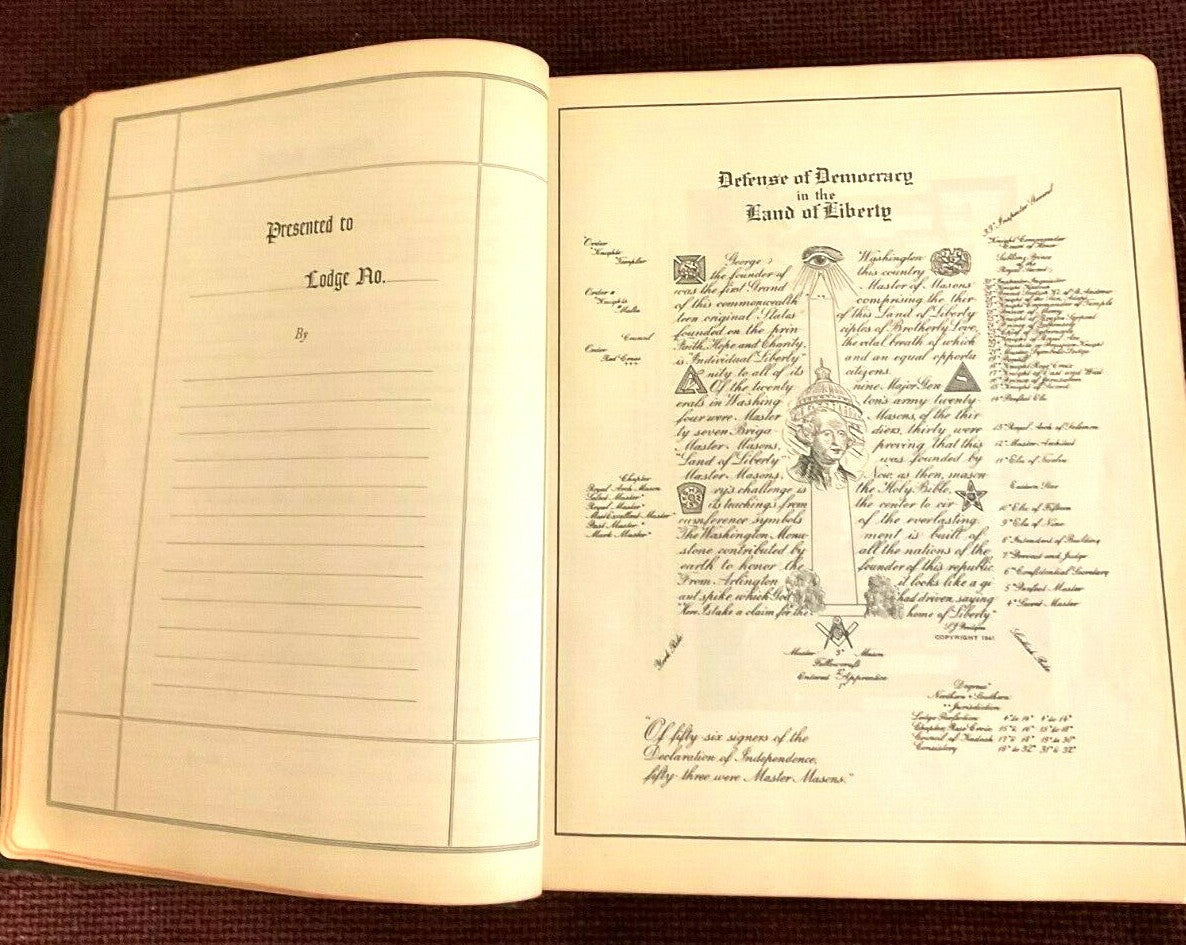 Presented to
Lodge No.
By
Defense of Democracy
in the
Land of Liberty
33° Inspector General
Order
Knights
Templar
Order
Knights
Malta
Council
Order
Red Cross
Knight Commander
Court of Honor
Sublime Prince
of the
Royal Secret
George Washington
the founder of this country
was the first Grand Master of Masons
of this commonwealth comprising the thir
teen original States of this Land of Liberty
founded on the prin ciples of Brotherly Love,
Faith, Hope and Charity, the vital breath of which
is "Individual Liberty" and an equal opportu
nity to all of its citizens.
Of the twenty nine Major Gen
erals in Washing ton's army twenty
four were Master Masons, of the thir
ty seven Briga diers, thirty were
Master Masons, proving that this
"Land of Liberty" was founded by
Master Masons. Now, as then, mason
ry's challenge is the Holy Bible,
its teachings from the center to cir
cumference symbols of the everlasting.
The Washington Monu ment is built of
stone contributed by all the nations of the
earth to honor the founder of this republic
From Arlington it looks like a gi
ant spike which God had driven, saying
"Here I stake a claim for the home of Liberty"
COPYRIGHT 1941
17° Knight of East and West
16° Prince of Jerusalem
14° Perfect Elu
13° Royal Arch of Solomon
12° Master Architect
Eastern Star
10° Elu of Fifteen
9° Elu of Nine
8° Intendent of Building
7° Provost and Judge
6° Confidential Secretary
5° Perfect Master
4° Secret Master
Chapter
Royal Arch Mason
Select Master
Royal Master
Most Excellent Master
Past Master
Mark Master
York Rite
Scottish Rite
G
Master 3° Mason
Fellowcraft
Entered Apprentice
Degrees
Northern Southern
Jurisdiction
Lodge Perfection 4° to 14° 4° to 14°
Chapter Rose Croix 15° to 18°
Council of Kadosh 19° to 30°
Consistory 31° & 32°
"Of fifty-six signers of the
Declaration of Independence,
fifty-three were Master Masons."